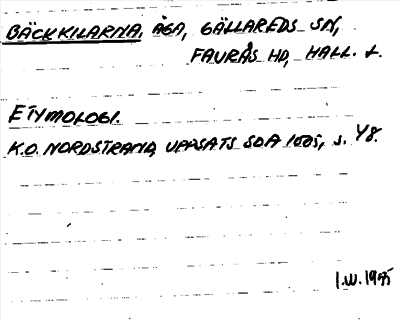 BÄCKKILARNA, ÄGA, GÄLLAREDS SN,
FAURÅS HD, HALL. L.
ETYMOLOGI.
K.O. NORDSTRAND, UPPSATS SOA 1005, s. 48.
I.W. 1975